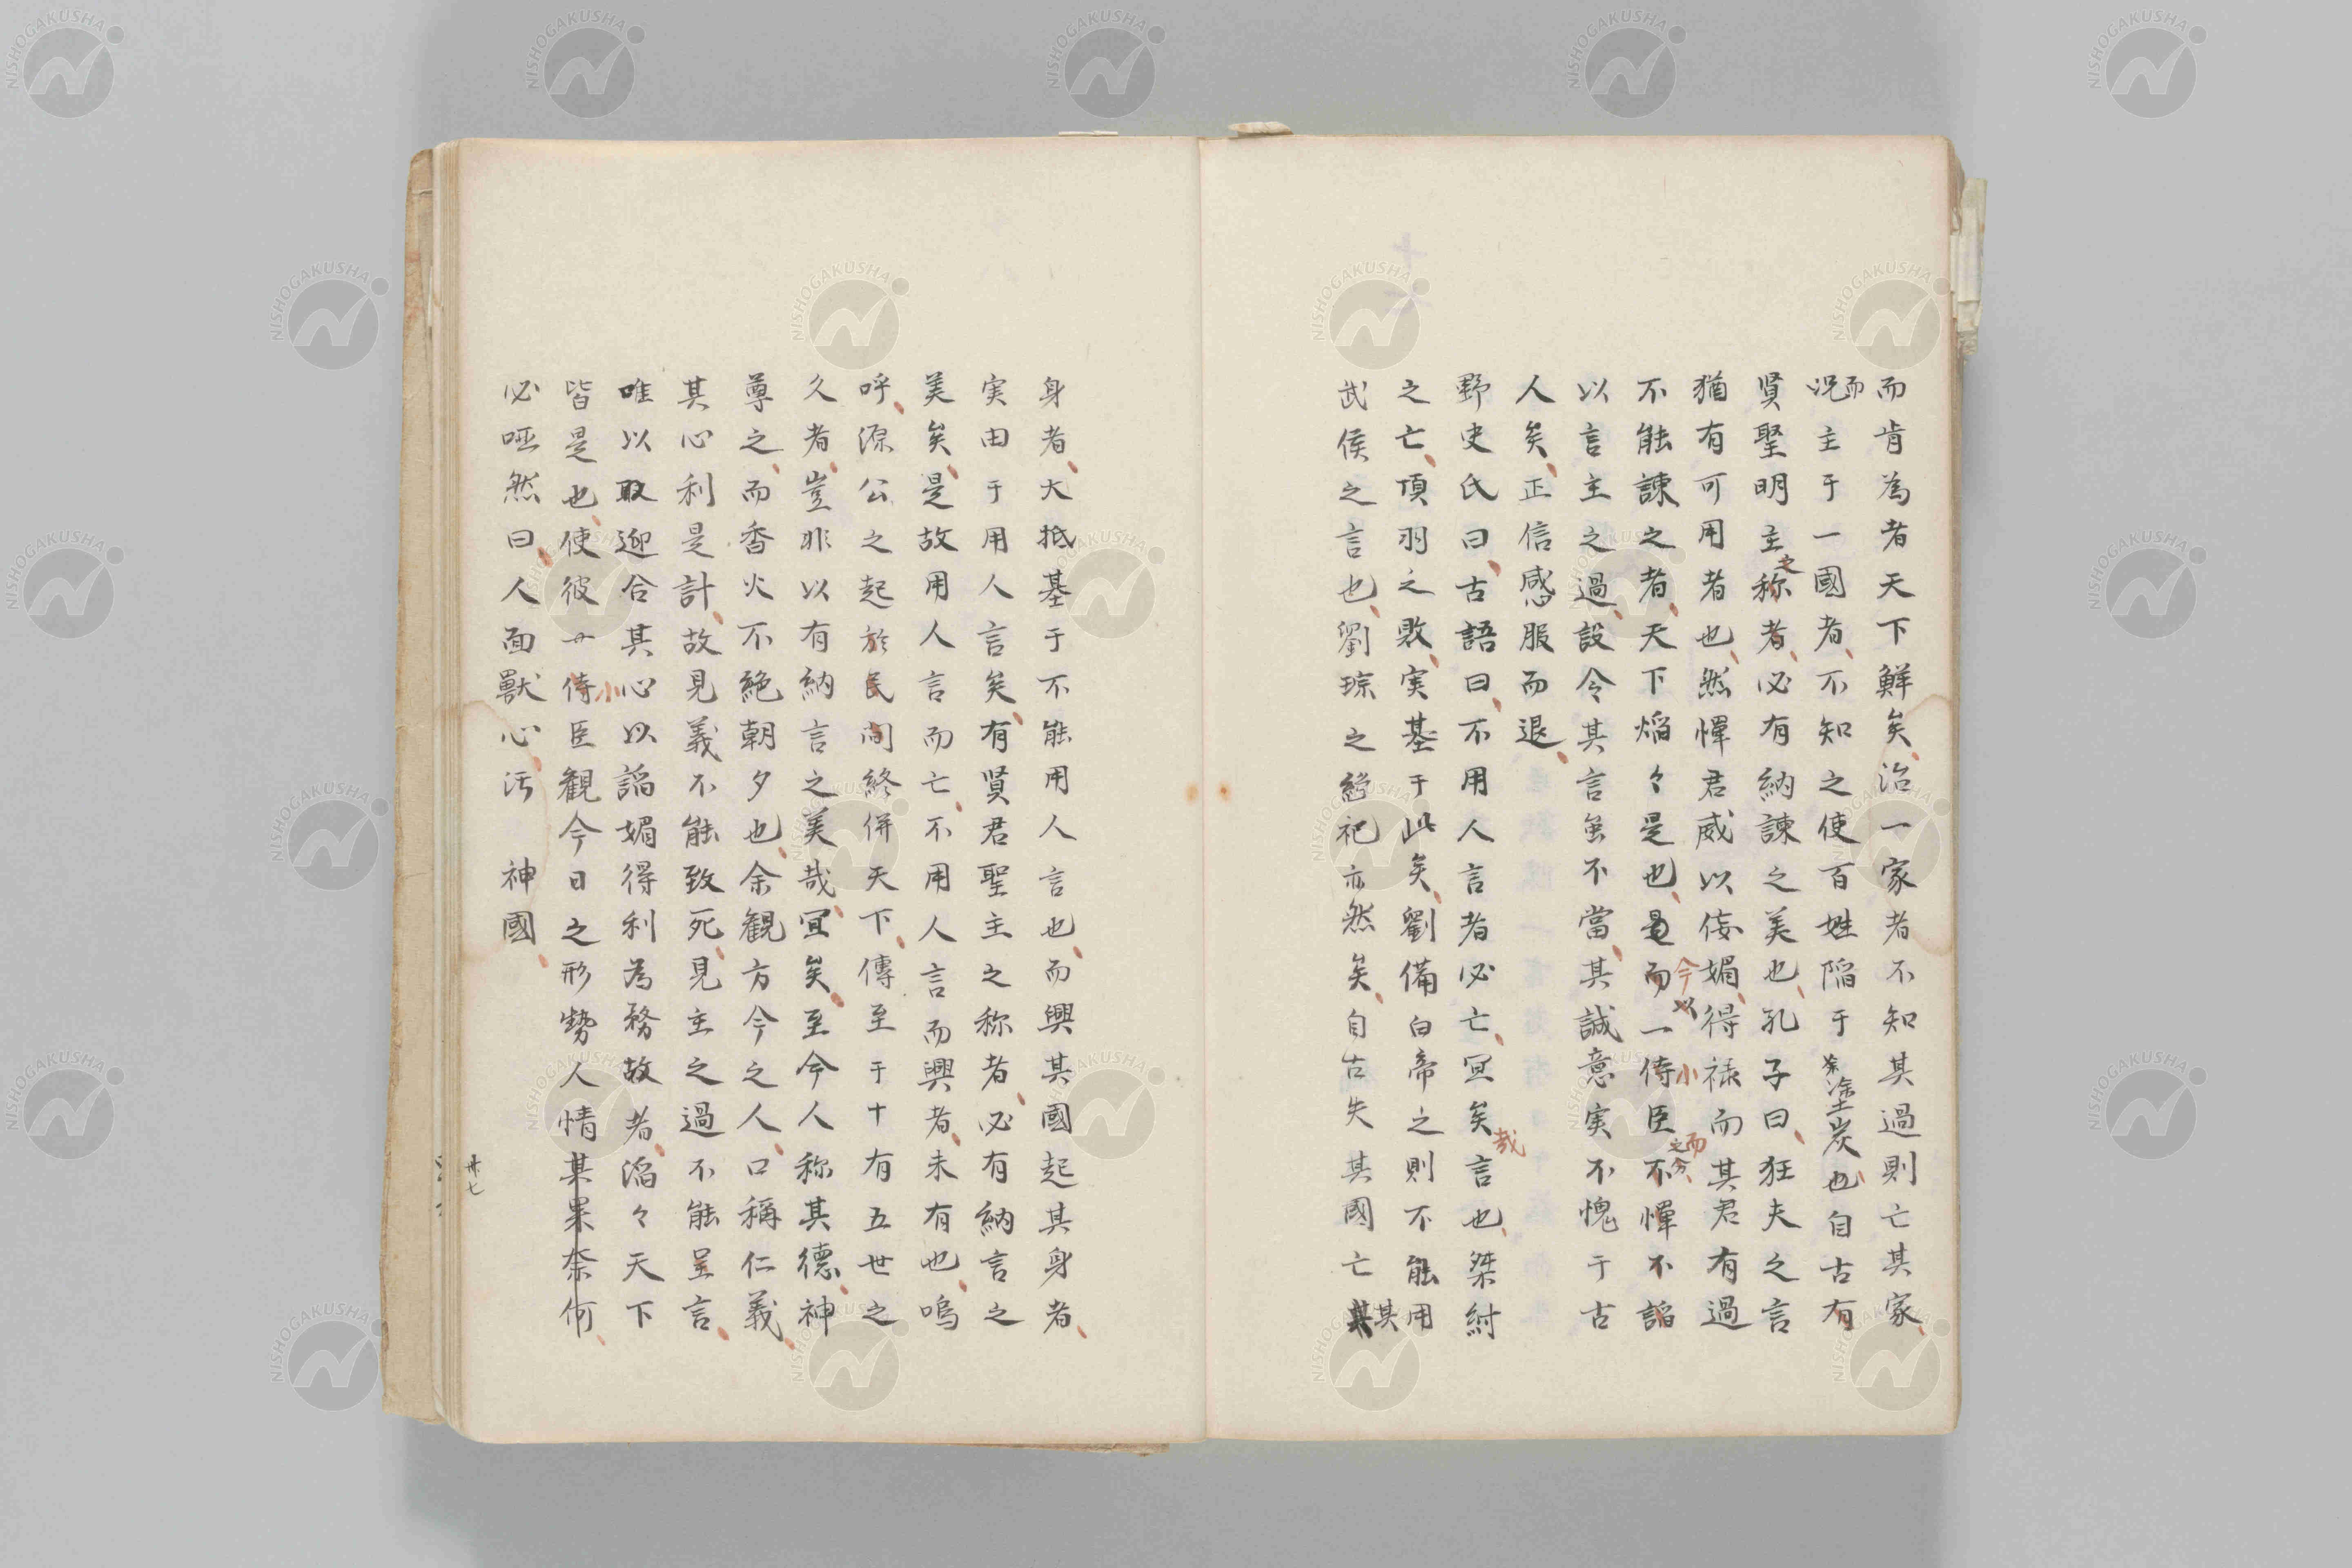 而肯為者天下鮮矣治一家者不知其過則亡其家
而況主于一國者不知之使百姓陷于塗炭也自古有
賢聖明主之称者必有納諫之美也孔子曰狂夫之言
猶有可用者也然憚君威以倿媚得禄而其君有過
不能諫之者天下焔々是也今以一小侍臣而不憚不諂
以言主之過設令其言虽不當其誠意実不愧于古
人矣正信感服而退
野史氏曰古語曰不用人言者必亡冝矣哉言也桀紂
之亡項羽之敗実基于此矣劉備白帝之則不能用
武侯之言也劉琮之絶祀亦然矣自古失其國亡其
身者大抵基于不能用人言也而興其國起其身者
実由于用人言矣有賢君聖主之称者必有納言之
美矣是故用人言而亡不用人言而興者未有也嗚
呼源公之起於民間終併天下傳至于十有五世之
久者豈非以有納言之美哉冝矣至今人称其德神
尊之而香火不絶朝夕也余観方今之人口稱仁義
其心利是計故見義不能致死見主之過不能呈言
唯以取迎合其心以諂媚得利為務故者滔々天下
皆是也使彼一小侍臣観今日之形勢人情其果奈何
必哑然曰人面獣心汚　神國
卅七
NISHOGAKUSHA